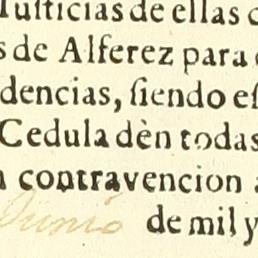 Iuſticias de ellas
s de Alferez para
dencias, ſiendo eſ
Cedula dèn todas
contravencion a
Junio de mil y